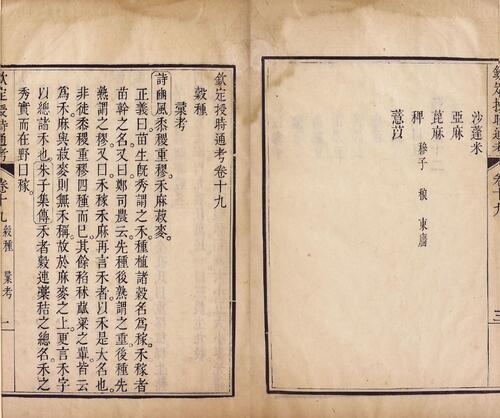 沙蓬米
亞麻
蓖麻
稗 穇子 稂 東廧
薏苡
欽定授時通考卷十九
穀種
彙考
詩豳風黍稷重穋禾麻菽麥。
正義曰苗生既秀謂之禾種植諸穀名爲稼禾稼者
苗幹之名又曰鄭司農云先種後熟謂之重後種先
熟謂之穋又曰禾稼禾麻再言禾者以禾是大名也
非徒黍稷重穋四種而已其餘稻秫苽粱之輩皆云
爲禾麻與菽麥則無禾稱故於麻麥之上更言禾字
以總諸禾也朱子集傳禾者穀連藁秸之總名禾之
秀實而在野曰稼。
欽定授時通考 卷十九 穀種 彙考 一